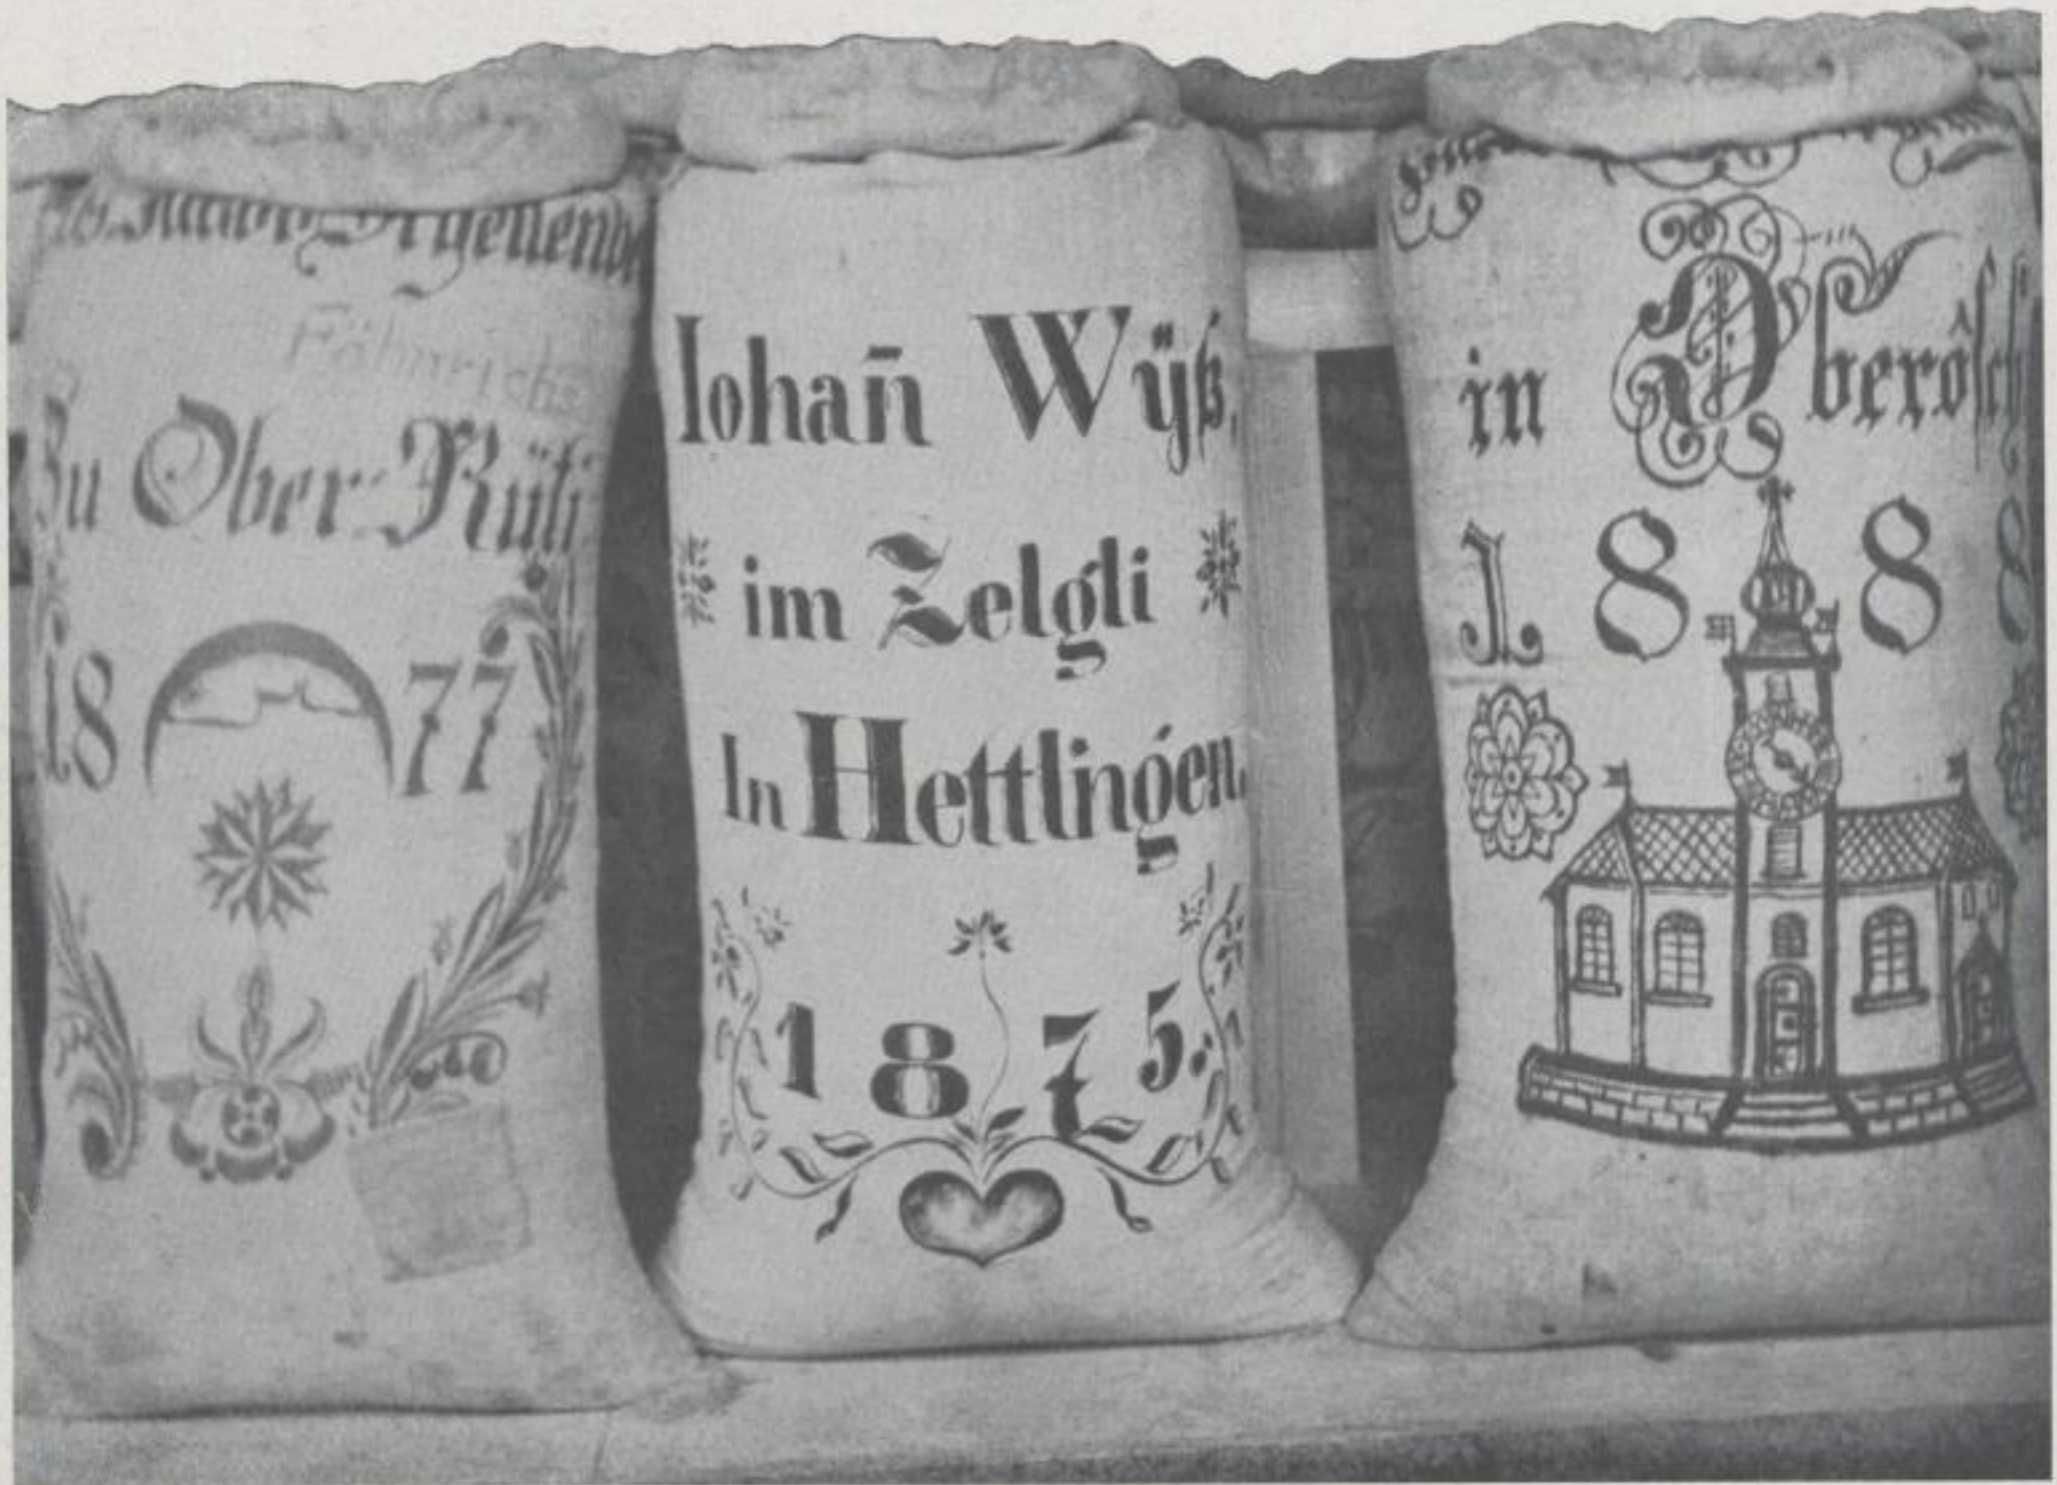 Fähnrichs
Zu Ober-Rüti
1877
Iohañ Wÿß.
im Zelgli
In Hettlingen.
1875.
in Oberösch
1888